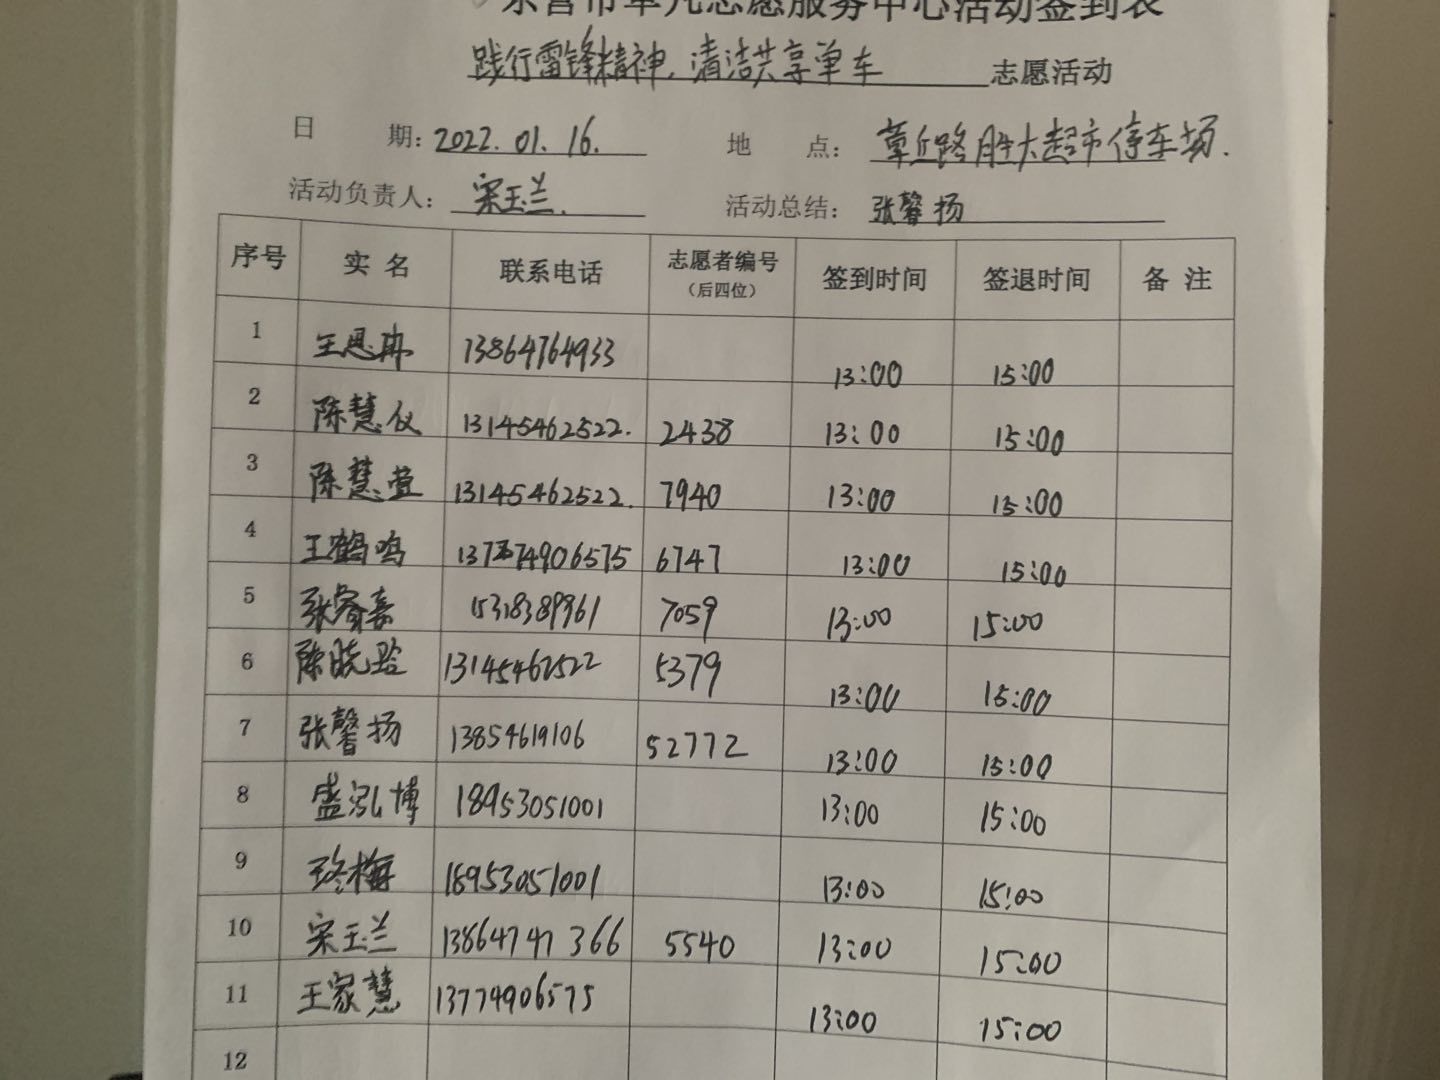 东营市草凡志愿服务中心活动签到表
践行雷锋精神,清洁共享单车 志愿活动
日 期: 2022.01.16. 地 点: 莘丘路胜大超市停车场.
活动负责人: 宋玉兰. 活动总结: 张馨扬
序号 实名 联系电话 志愿者编号(后四位) 签到时间 签退时间 备注
1 王思冉 13864764933 13:00 15:00
2 陈慧仪 13145462522. 2438 13:00 15:00
3 陈慧萱 13145462522. 7940 13:00 15:00
4 王鹤鸣 6747 13:00 15:00
5 张睿嘉 15318389961 7059 13:00 15:00
6 陈晓 13145462522 5379 13:00 15:00
7 张馨扬 13854619106 52772 13:00 15:00
8 盛泓博 18953051001 13:00 15:00
9 18953051001 13:00 15:00
10 宋玉兰 13864747366 5540 13:00 15:00
11 王家慧 13774906575 13:00 15:00
12